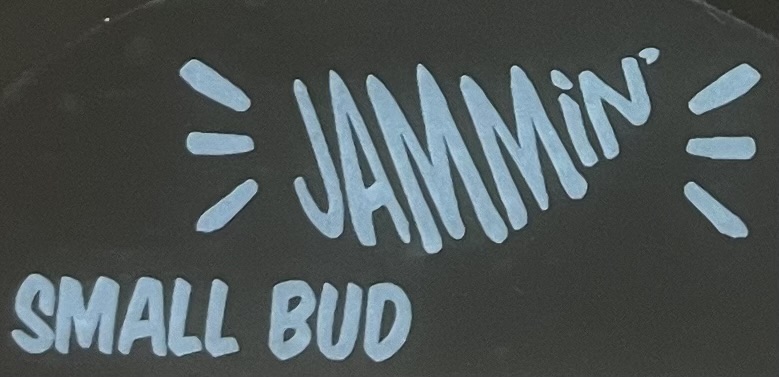 JAMMiN'
SMALL BUD